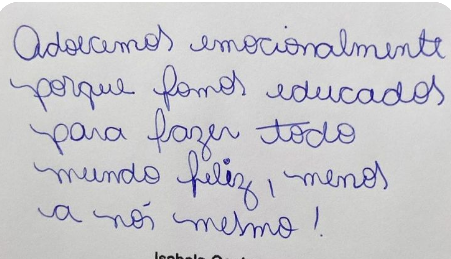 Adoecemos emocionalmente
porque fomos educados
para fazer todo
mundo feliz, menos
a nós mesmo!